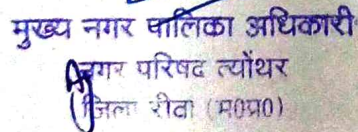 मुख्य नगर पालिका अधिकारी
नगर परिषद त्योंथर
जिला रीवा (म0प्र0)